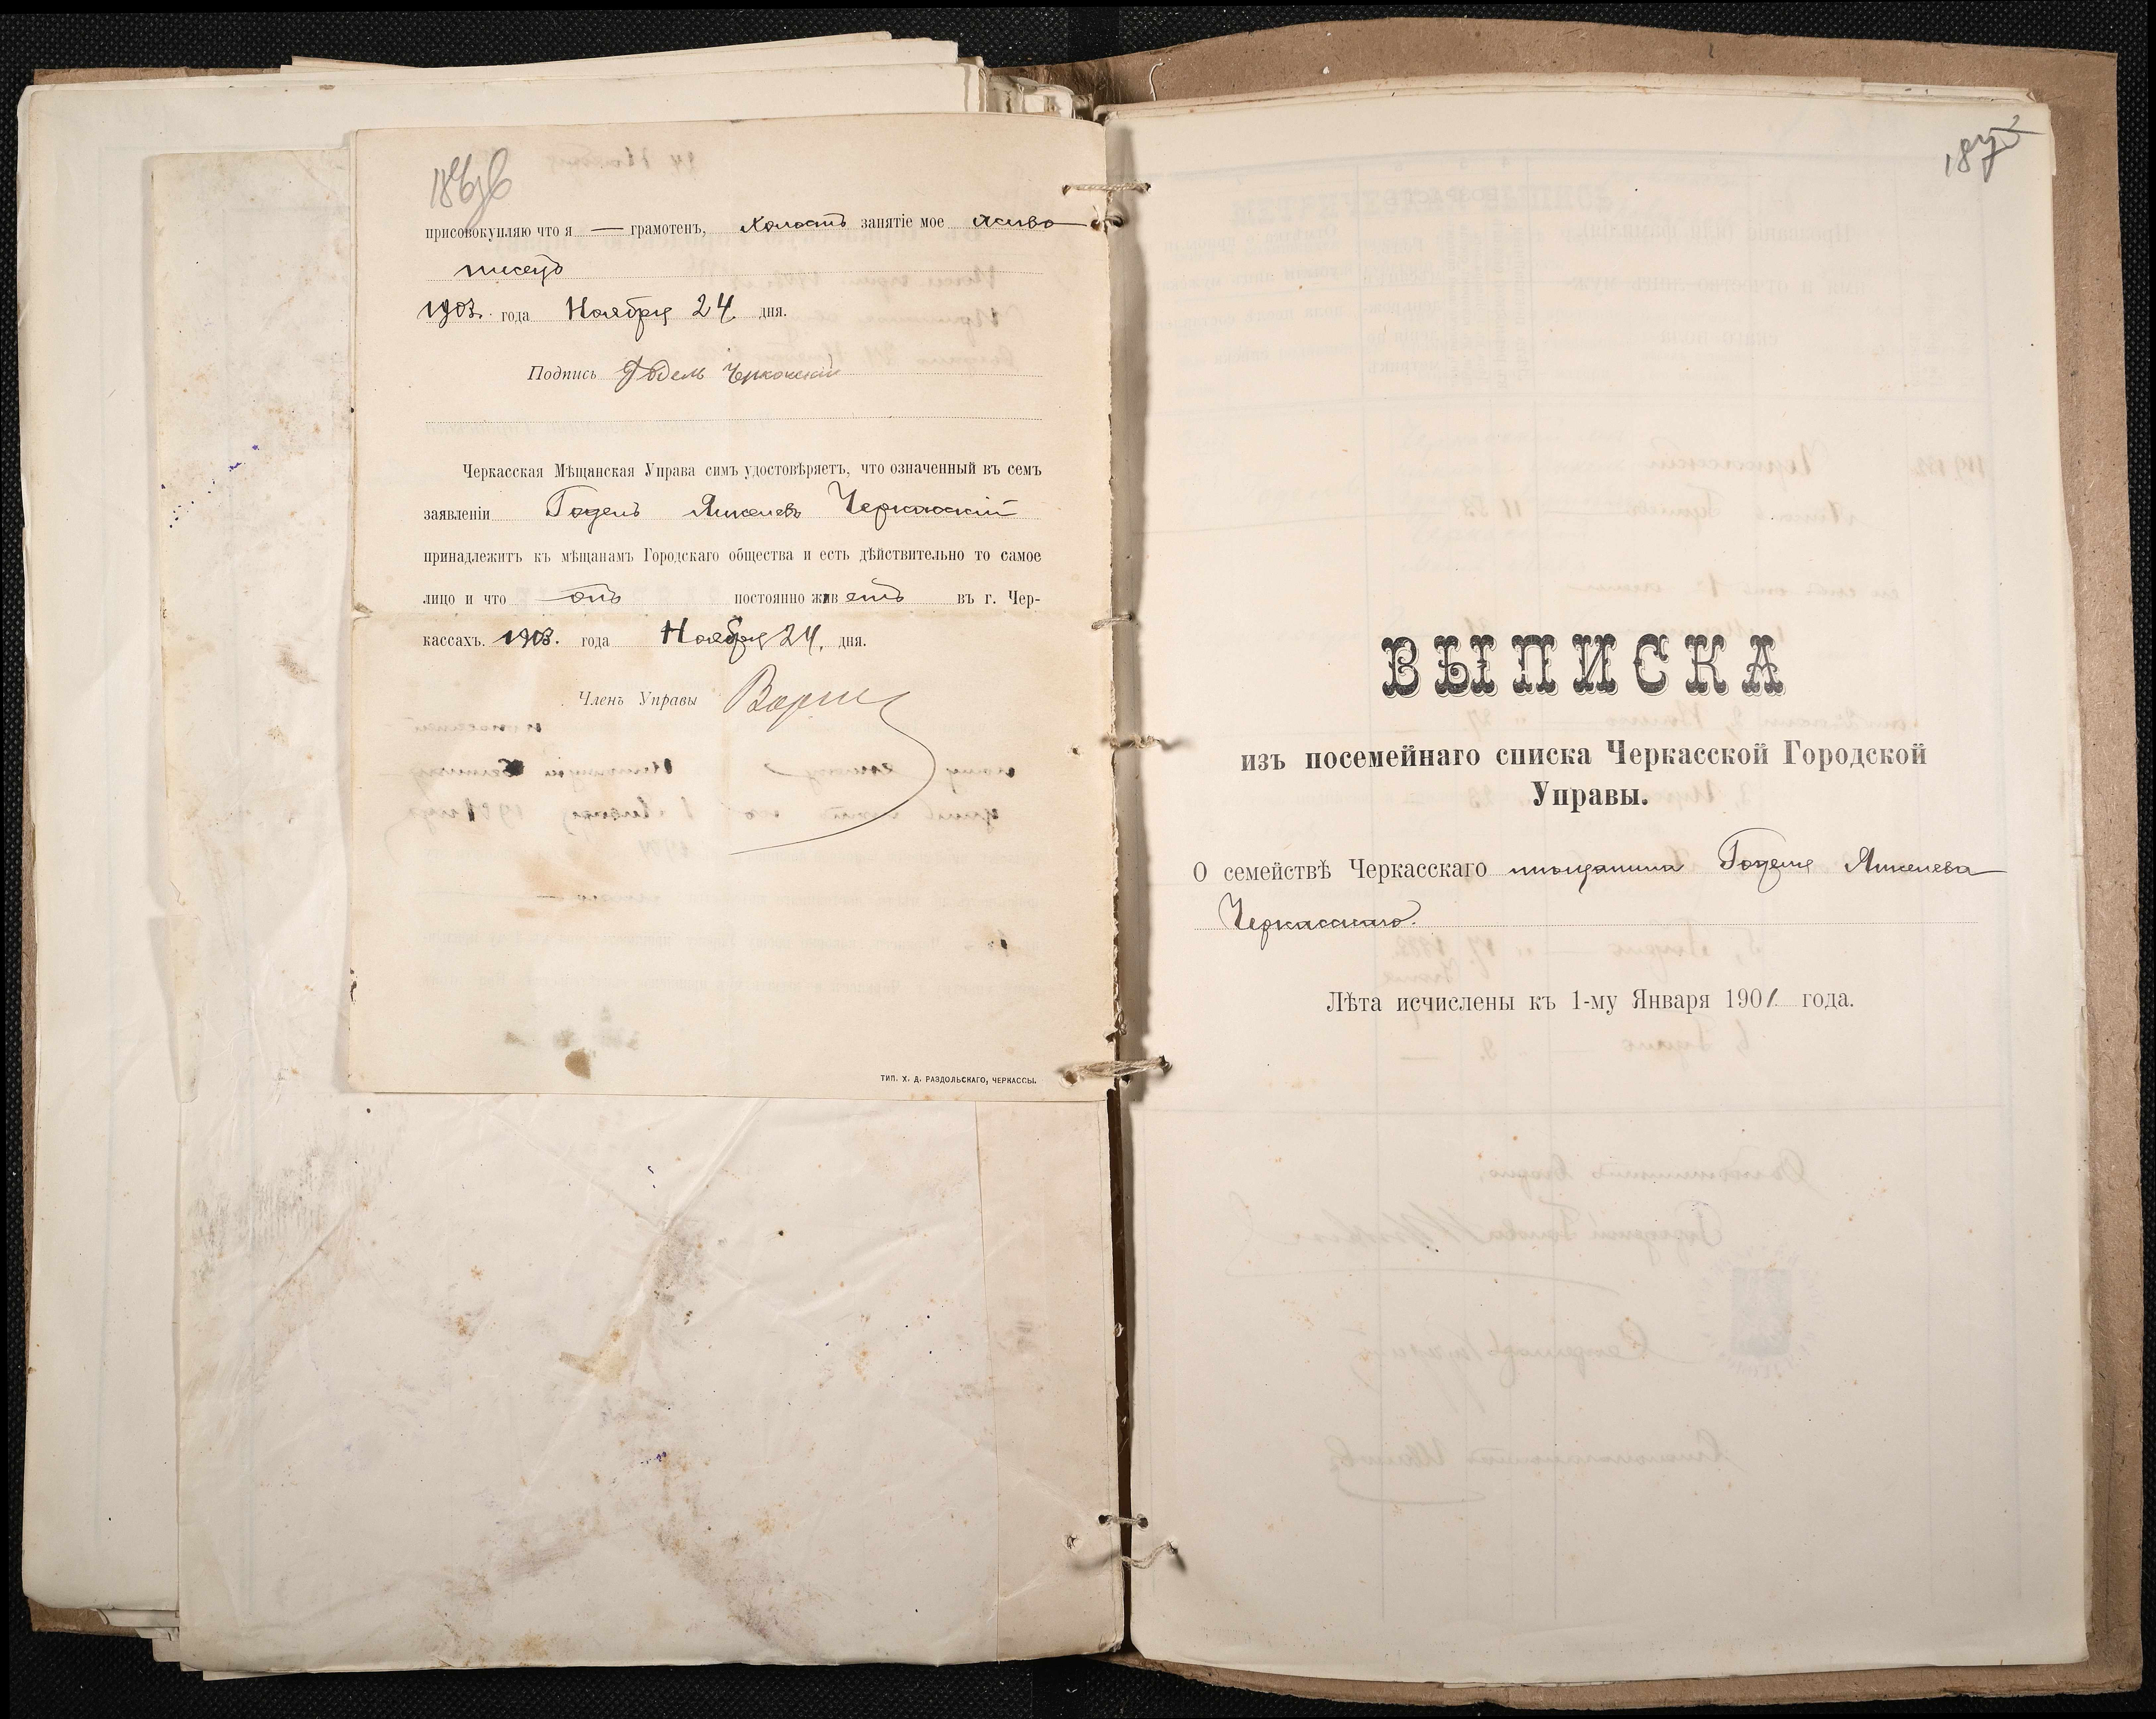 присовокупляю что я — грамотенъ, холостъ занятіе мое живо
писецъ
1903. года Ноября 24 дня.
Подпись Годель Черкаскій
Черкасская Мѣщанская Управа симъ удостовѣряетъ, что означенный въ семъ
заявленіи Годель Янкелевъ Черкасскій
принадлежитъ къ мѣщанамъ Городскаго общества и есть дѣйствительно то самое
лицо и что онъ постоянно живетъ въ г. Чер-
кассахъ. 1903. года Ноября 24. дня.
Членъ Управы
ТИП. Х. Д. РАЗДОЛЬСКАГО, ЧЕРКАССЫ.
187
ВЫПИСКА
изъ посемейнаго списка Черкасской Городской
Управы.
О семействѣ Черкасскаго мѣщанина Годеля Янкелева
Черкасскаго.
Лѣта исчислены къ 1-му Января 1901 года.